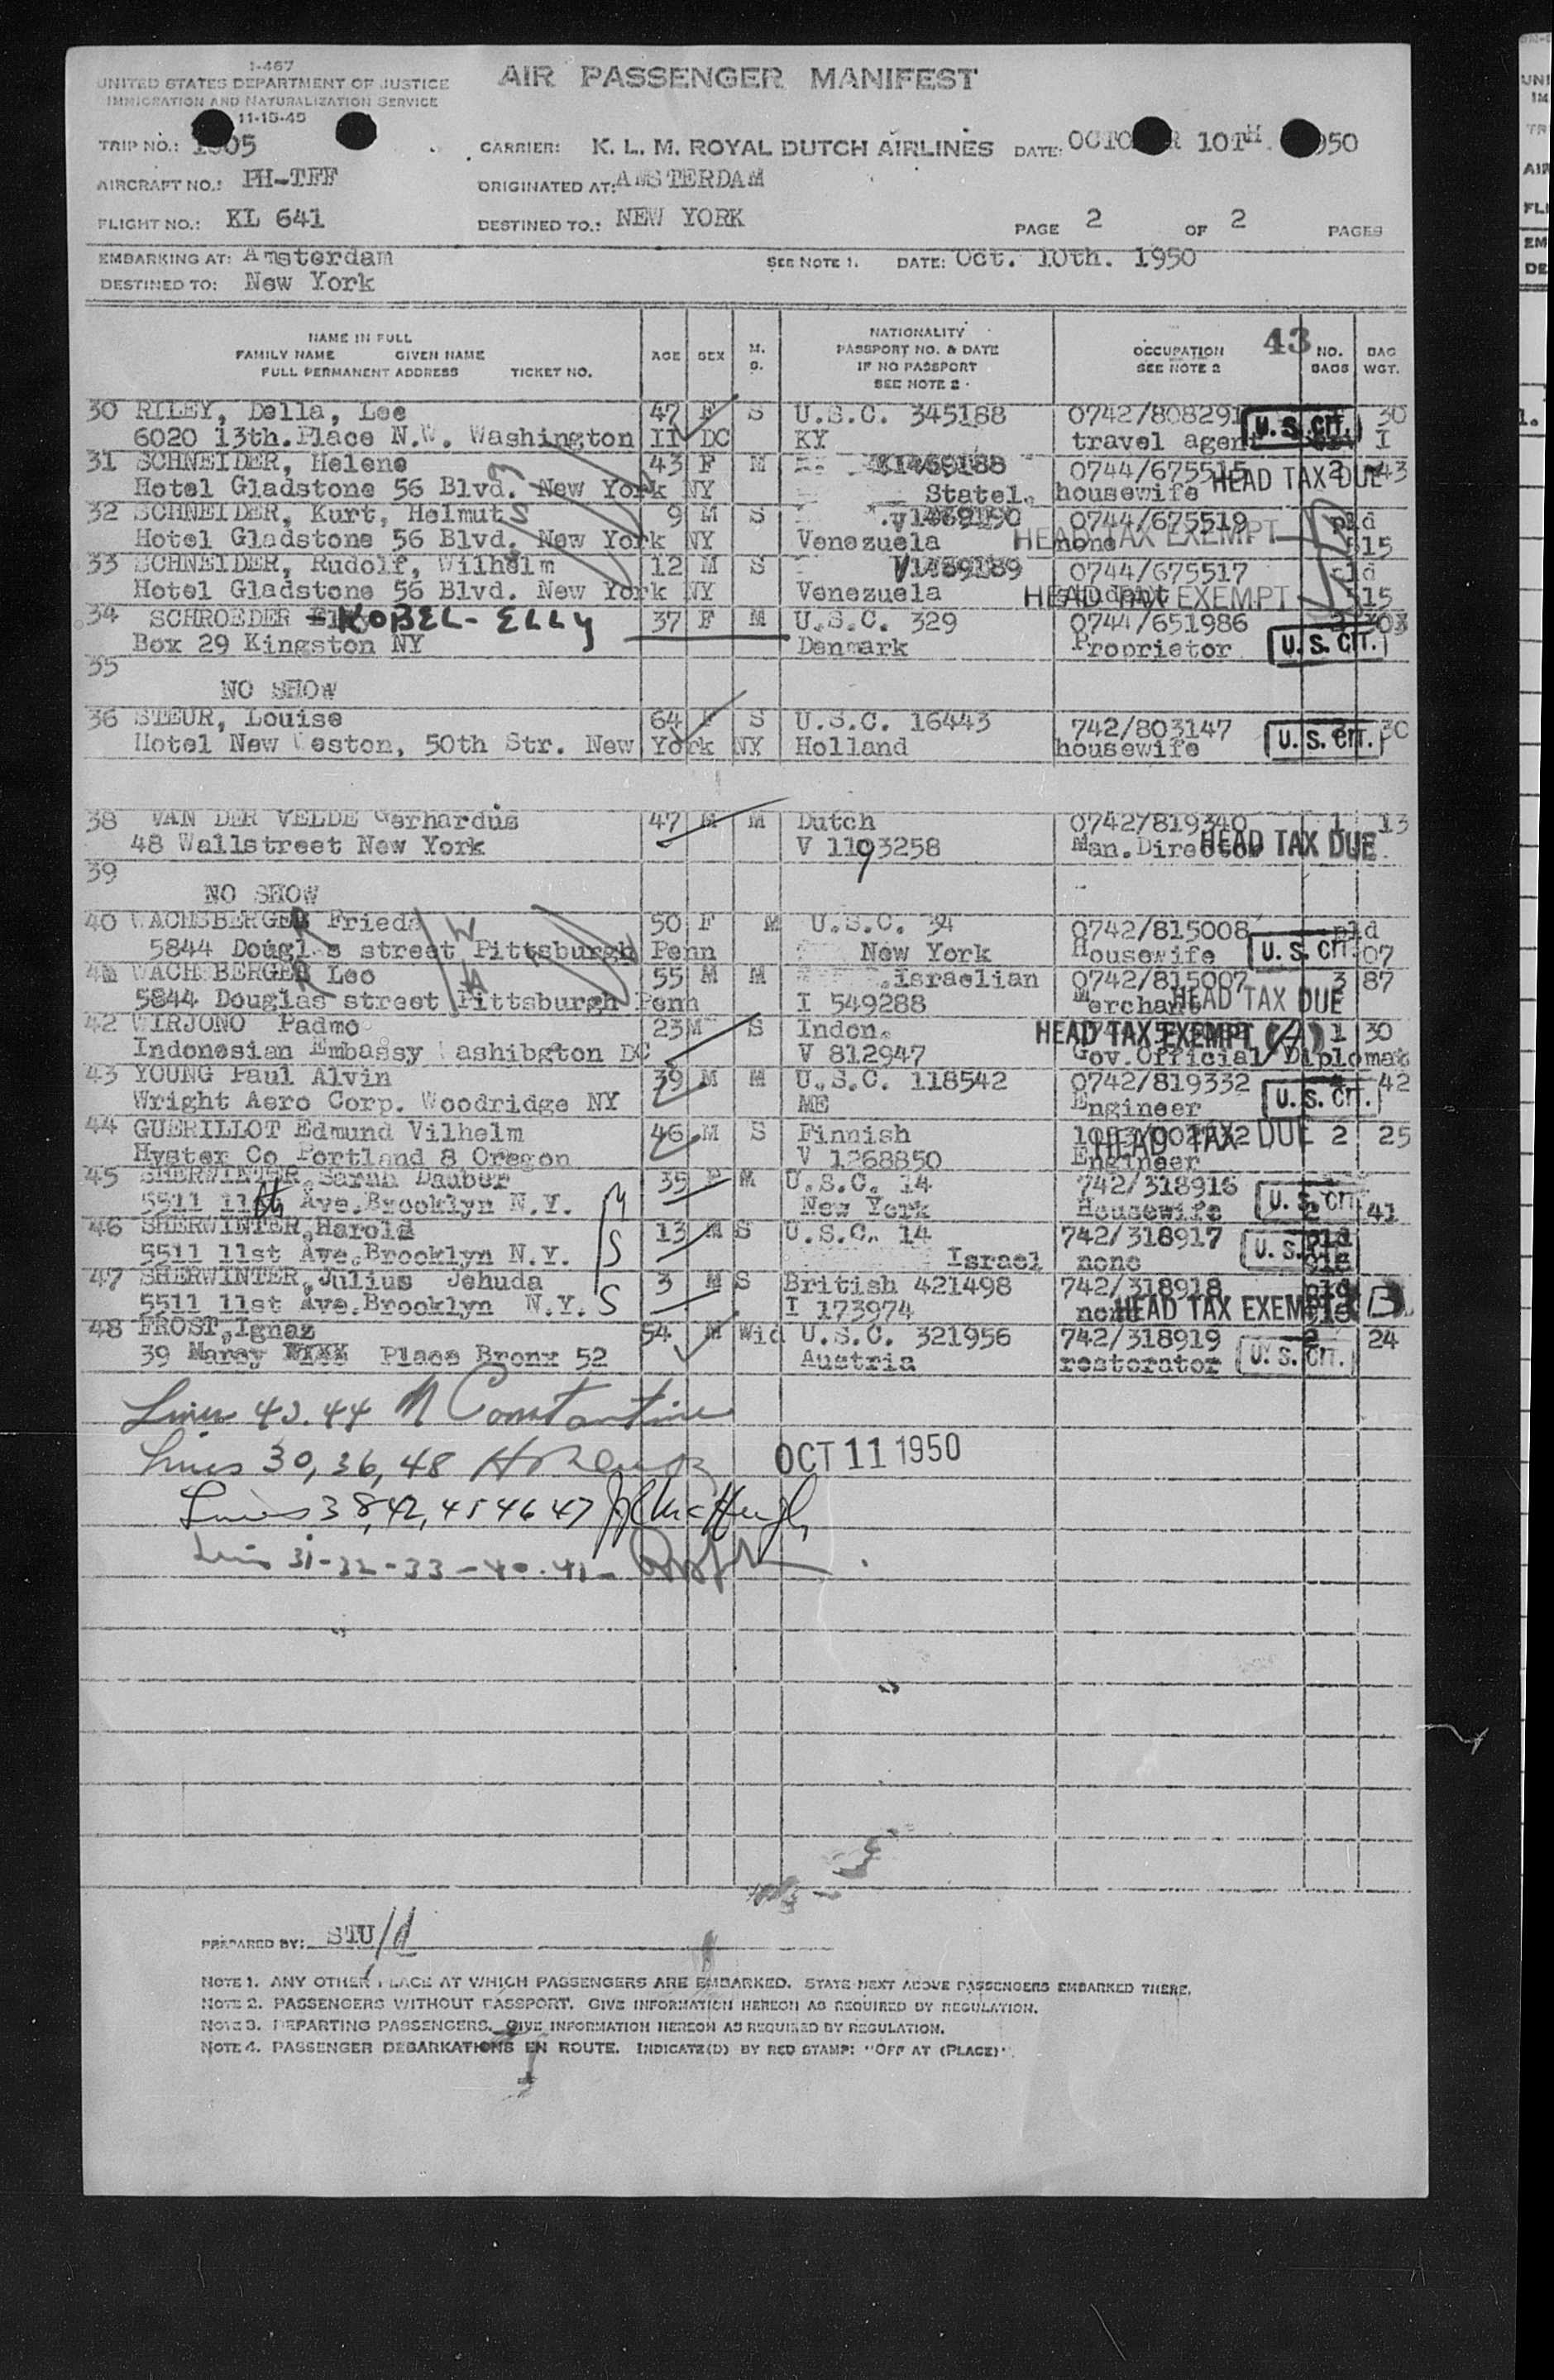 1-467
UNITED STATES DEPARTMENT OF JUSTICE
IMMIGRATION AND NATURALIZATION SERVICE
11-15-45
AIR PASSENGER MANIFEST
TRIP NO.: 05 CARRIER: K. L. M. ROYAL DUTCH AIRLINES DATE: OCTO R 10TH. 950
AIRCRAFT NO.: PH-TFF ORIGINATED AT: AMSTERDAM
FLIGHT NO.: KL 641 DESTINED TO.: NEW YORK PAGE 2 OF 2 PAGES
EMBARKING AT: Amsterdam SEE NOTE 1. DATE: Oct. 10th. 1950
DESTINED TO: New York
NAME IN FULL
FAMILY NAME GIVEN NAME
FULL PERMANENT ADDRESS TICKET NO.
AGE SEX M. S.
NATIONALITY
PASSPORT NO. & DATE
IF NO PASSPORT
SEE NOTE 2
OCCUPATION
SEE NOTE 2
43
NO. BAGS
BAG WGT.
30 RILEY, Della, Lee 47 F S U.S.C. 345188 0742/808291 U.S. CIT. 30
6020 13th. Place N.W. Washington II DC KY travel agent I
31 SCHNEIDER, Helene 43 F M 1469188 0744/675515 2 43
Hotel Gladstone 56 Blvd. New York NY Statel. housewife HEAD TAX DUE
32 SCHNEIDER, Kurt, Helmut S 9 M S V1469190 0744/675519 pld
Hotel Gladstone 56 Blvd. New York NY Venezuela none HEAD TAX EXEMPT 515
33 SCHNEIDER, Rudolf, Wilhelm 12 M S V1469189 0744/675517 pld
Hotel Gladstone 56 Blvd. New York NY Venezuela student HEAD TAX EXEMPT 515
34 SCHROEDER KOBEL-ELLY 37 F M U.S.C. 329 0744/651986
Box 29 Kingston NY Denmark Proprietor U.S. CIT.
35
NO SHOW
36 STEUR, Louise 64 F S U.S.C. 16443 742/803147 30
Hotel New Weston, 50th Str. New York NY Holland housewife U.S. CIT.
38 VAN DER VELDE Gerhardus 47 M M Dutch 0742/819340 1 13
48 Wallstreet New York V 1193258 Man.Director HEAD TAX DUE
39
NO SHOW
40 WACHSBERGER Frieda 50 F M U.S.C. 34 0742/815008 pld
5844 Douglas street Pittsburgh Penn New York Housewife U.S. CIT. 07
41 WACHSBERGER Leo 55 M M israelian 0742/815007 3 87
5844 Douglas street Pittsburgh Penn I 549288 Merchant HEAD TAX DUE
42 WIRJONO Padmo 23 M S Indon. HEAD TAX EXEMPT 1 30
Indonesian Embassy Washibgton DC V 812947 Gov.Official/Diplomat
43 YOUNG Paul Alvin 39 M M U.S.C. 118542 0742/819332 42
Wright Aero Corp. Woodridge NY ME Engineer U.S. CIT.
44 GUERILLOT Edmund Vilhelm 46 M S Finnish HEAD TAX DUE 2 25
Hyster Co Portland 8 Oregon V 1268850 Engineer
45 SHERWINTER, Sarah Dauber 35 F M U.S.C. 14 742/318916
5511 11th Ave.Brooklyn N.Y. M New York Housewife U.S. CIT. 2 41
46 SHERWINTER, Harold 13 M S U.S.C. 14 742/318917 pld
5511 11st Ave.Brooklyn N.Y. S Israel none U.S.
47 SHERWINTER, Julius Jehuda 3 M S British 421498 742/318918 pld
5511 11st Ave.Brooklyn N.Y. S I 173974 none HEAD TAX EXEMPT
48 FROST, Ignaz 54 M Wid U.S.C. 321956 742/318919 2 24
39 Marcy Place Bronx 52 Austria restorator U.S. CIT.
Lines 43.44 Constantine
Lines 30, 36, 48 OCT 11 1950
Lines 38, 42, 45 46 47
31-32-33-40-41-
PREPARED BY: STU/d
NOTE 1. ANY OTHER PLACE AT WHICH PASSENGERS ARE EMBARKED. STATE NEXT ABOVE PASSENGERS EMBARKED THERE.
NOTE 2. PASSENGERS WITHOUT PASSPORT. GIVE INFORMATION HEREON AS REQUIRED BY REGULATION.
NOTE 3. DEPARTING PASSENGERS. GIVE INFORMATION HEREON AS REQUIRED BY REGULATION.
NOTE 4. PASSENGER DEBARKATIONS EN ROUTE. INDICATE(D) BY RED STAMP: "OFF AT (PLACE)".